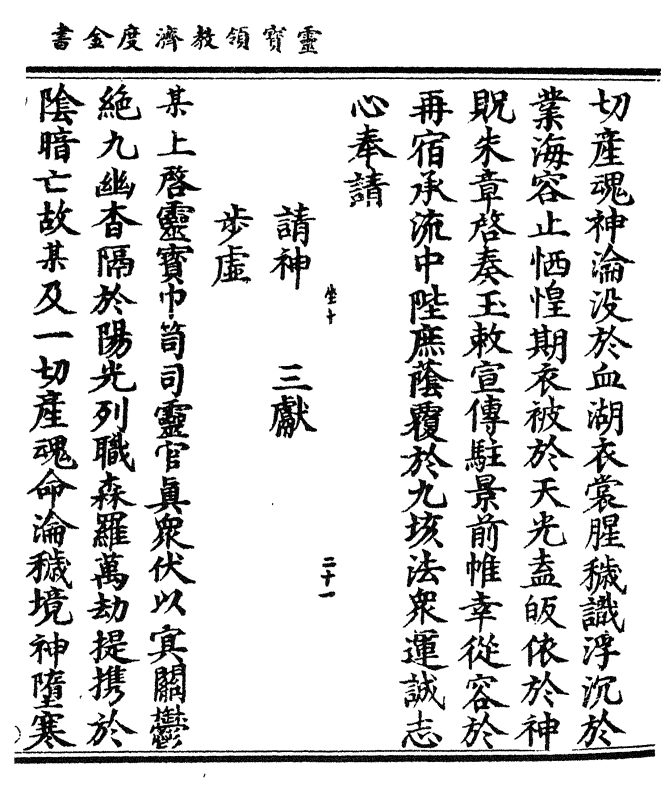 靈寶領教濟度金書
切産魂神淪没於血湖衣裳腥穢識浮沉於
業海容止恓惶期衣被於天光盍皈依於神
貺朱章啓奏玉敕宣傳駐景前帷幸從容於
再宿承流中陛庶蔭覆於九垓法衆運誠志
心奉請
請神 三獻
坐十 二十一
步虛
某上啓靈寶巾笥司靈官眞衆伏以冥關鬱
絶九幽杳隔於陽光列職森羅萬劫提携於
陰暗亡故某及一切産魂命淪穢境神墮寒